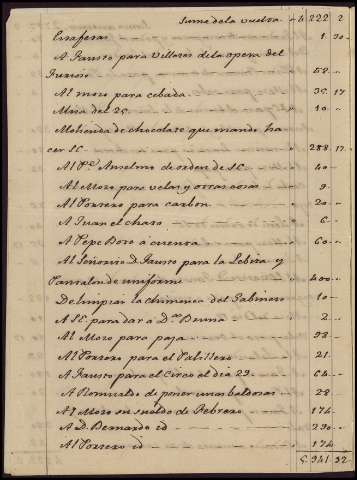 Suma de la vuelta 4 222 2
Estafetas 1 30
A Fausto para Villetes de la opera del
Furioso 58
Al mozo para cebada 35 17
Misa del 25 10
Molienda de chocolate que mando ha
cer S.E. 288 17
Al Pe. Anselmo de orden de S.E. 40
Al Mozo para velas y otras cosas 9
Al Portero para carbon 20
A Juan el chato 6
A Pepe Boto a cuenta 60
Al Señorito D. Fausto para la Lebita y
Pantalon de uniforme 400
De limpiar la chimenea del Gabinete 10
A S.E. para dar a Dn. Bruno 2
Al Mozo para paja 98
Al Portero para el Palillero 21
A Fausto para el Circo el dia 29 64
A Romualdo de poner unas baldosas 28
Al Mozo su sueldo de Febrero 174
A D. Bernardo id 230
Al Portero id 174
5 941 32